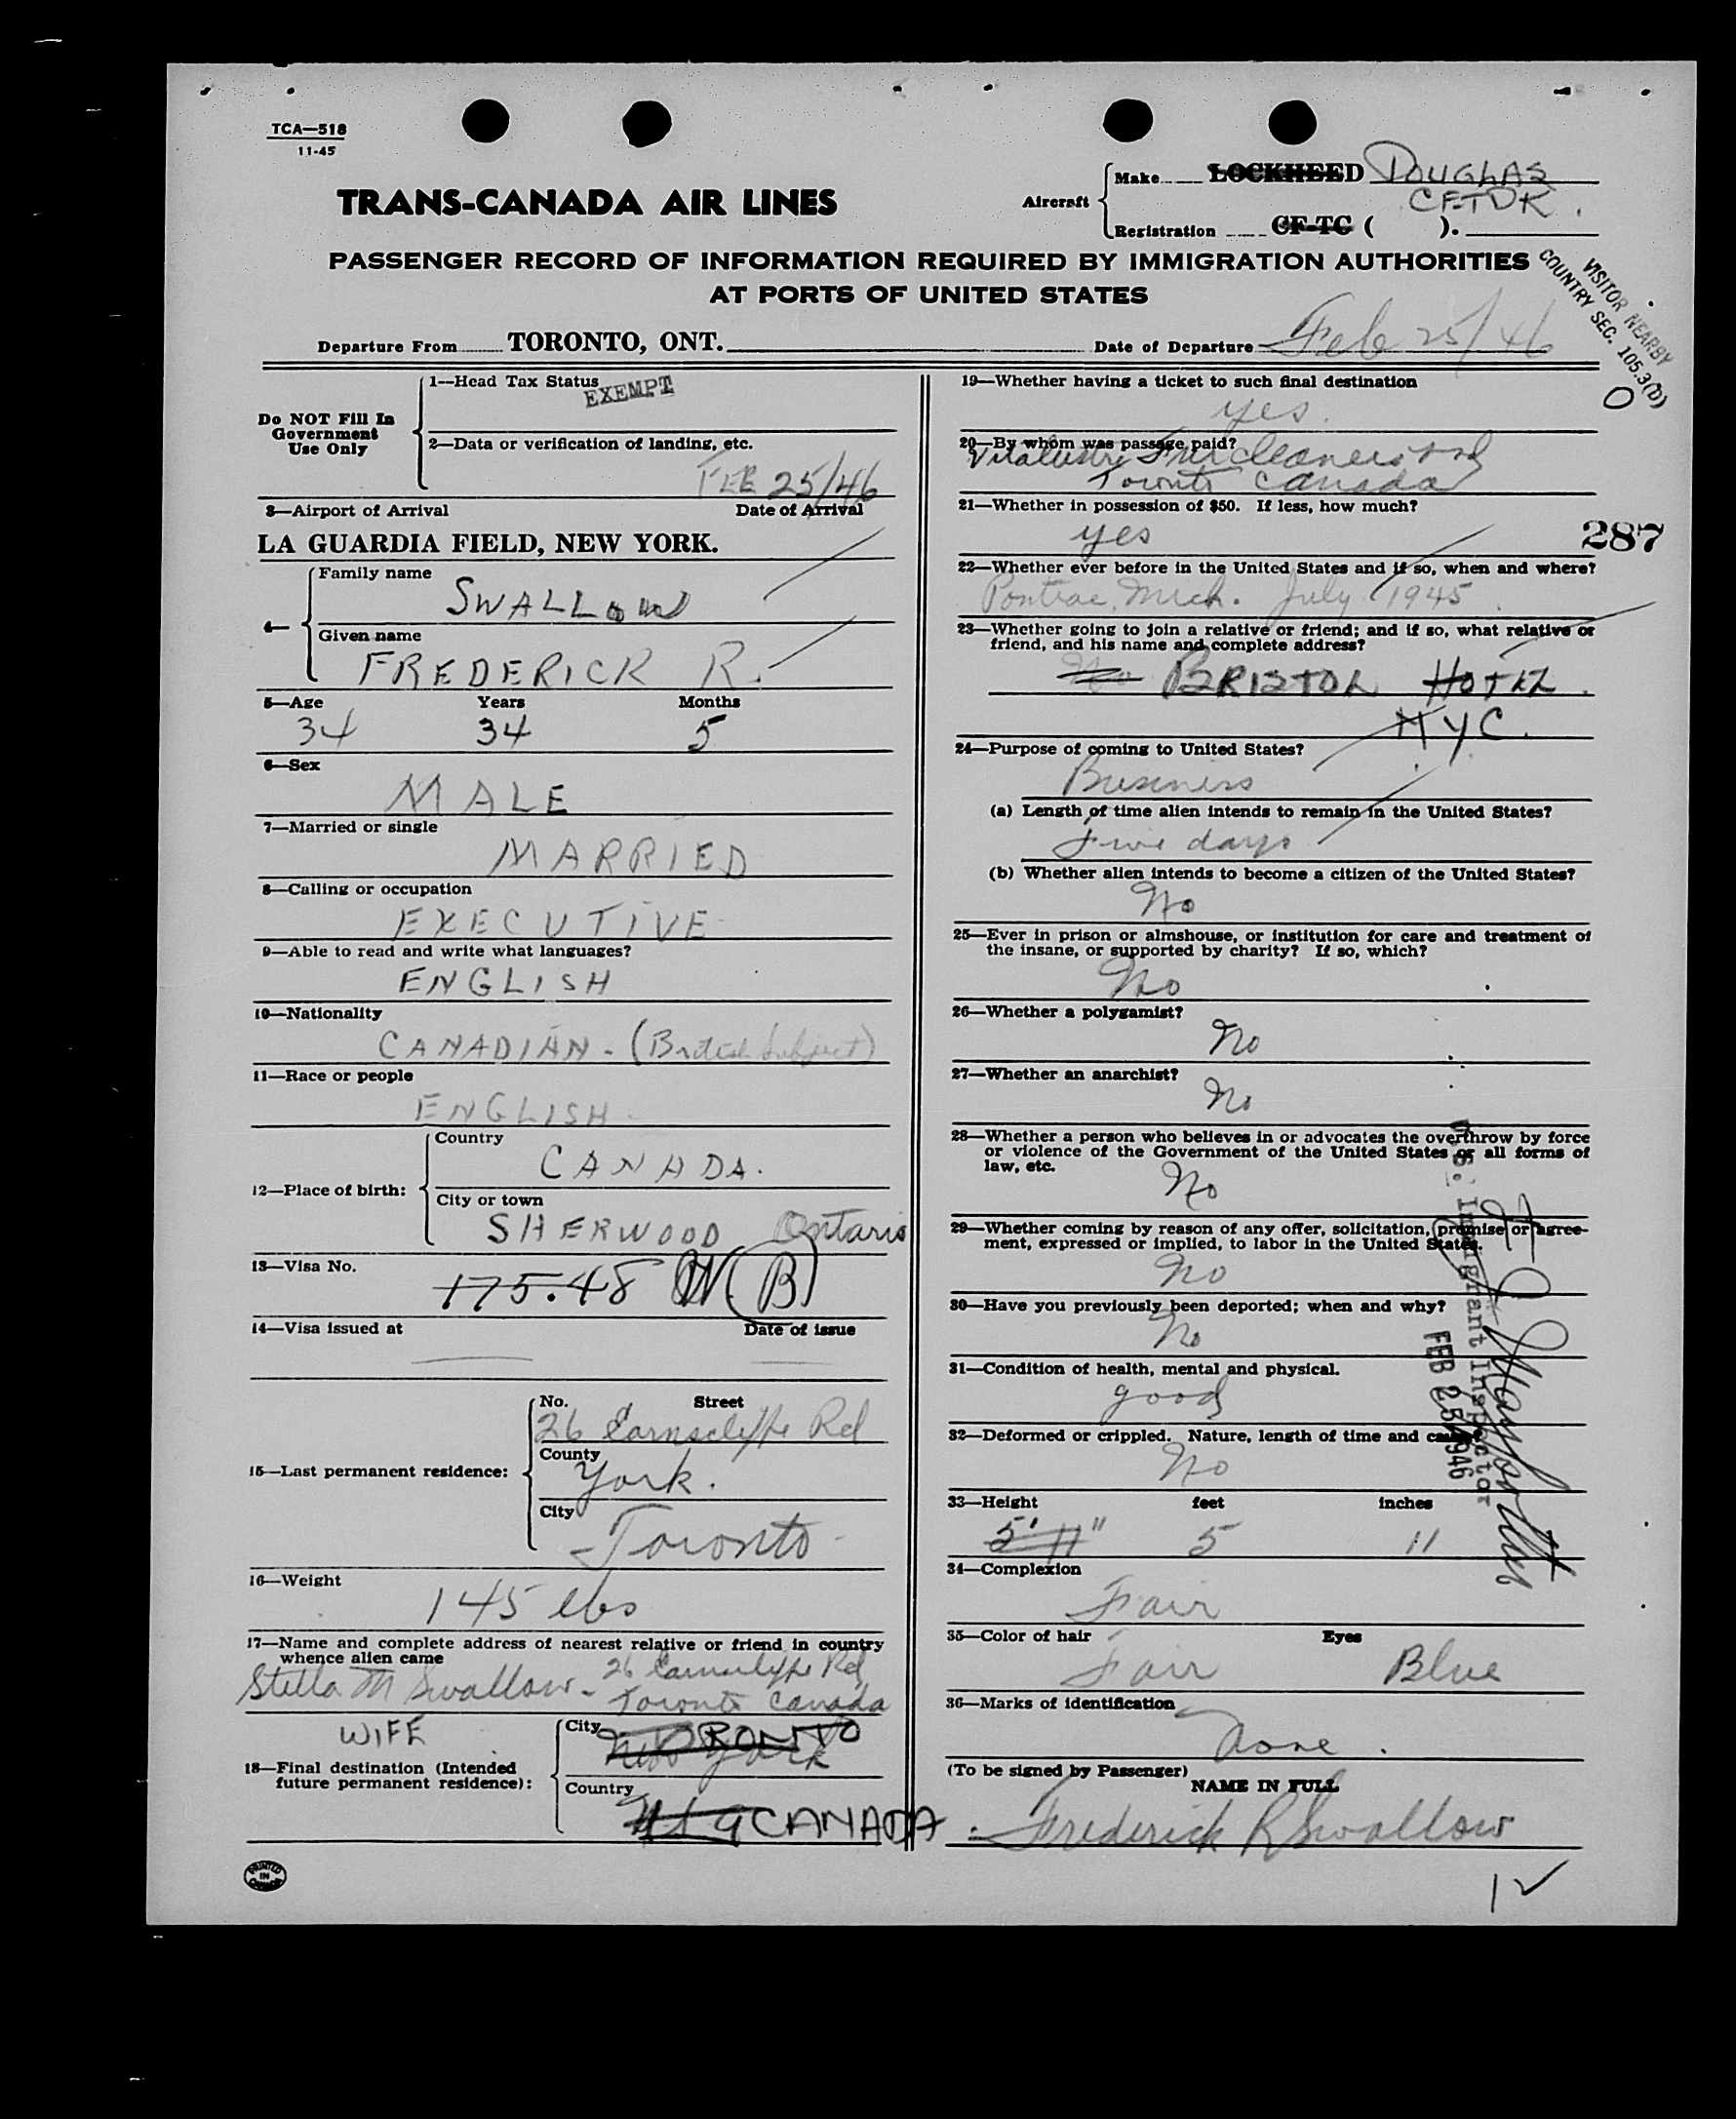 TCA—518
11-45
TRANS-CANADA AIR LINES
Aircraft
Make LOCKHEED DOUGLAS
CF-TDK.
Registration CF-TC ( ).
PASSENGER RECORD OF INFORMATION REQUIRED BY IMMIGRATION AUTHORITIES
AT PORTS OF UNITED STATES
VISITOR NEARBY
COUNTRY SEC. 105.3(b)
Departure From TORONTO, ONT. Date of Departure Feb 25/46
Do NOT Fill In
Government
Use Only
1—Head Tax Status EXEMPT
2—Data or verification of landing, etc.
FEB 25/46
3—Airport of Arrival Date of Arrival
LA GUARDIA FIELD, NEW YORK.
4—
Family name
SWALLOW
Given name
FREDERICK R.
5—Age Years Months
34 34 5
6—Sex
MALE
7—Married or single
MARRIED
8—Calling or occupation
EXECUTIVE
9—Able to read and write what languages?
ENGLISH
10—Nationality
CANADIAN - (British Subject)
11—Race or people
ENGLISH
12—Place of birth:
Country
CANADA.
City or town
SHERWOOD Ontario
13—Visa No.
175.48 (B)
14—Visa issued at Date of issue
15—Last permanent residence:
No. Street
26 Earnscliffe Rd
County
York.
City
Toronto
16—Weight
145 lbs
17—Name and complete address of nearest relative or friend in country
whence alien came
Stella M Swallow - 26 Earnscliffe Rd
Toronto Canada
WIFE
18—Final destination (Intended
future permanent residence):
City
TORONTO
New York
Country
USA CANADA
PRINTED
IN
CANADA
19—Whether having a ticket to such final destination
yes.
20—By whom was passage paid?
Vitalustre Fur Cleaners
Toronto Canada
21—Whether in possession of $50. If less, how much?
yes
287
22—Whether ever before in the United States and if so, when and where?
Pontiac, Mich. July 1945
23—Whether going to join a relative or friend; and if so, what relative or
friend, and his name and complete address?
No BRISTOL HOTEL.
NYC.
24—Purpose of coming to United States?
Business
(a) Length of time alien intends to remain in the United States?
Five days
(b) Whether alien intends to become a citizen of the United States?
No
25—Ever in prison or almshouse, or institution for care and treatment of
the insane, or supported by charity? If so, which?
No
26—Whether a polygamist?
No
27—Whether an anarchist?
No
28—Whether a person who believes in or advocates the overthrow by force
or violence of the Government of the United States or all forms of
law, etc.
No
29—Whether coming by reason of any offer, solicitation, promise or agree-
ment, expressed or implied, to labor in the United States.
No
30—Have you previously been deported; when and why?
No
31—Condition of health, mental and physical.
good
32—Deformed or crippled. Nature, length of time and cause?
No
U.S. Immigrant Inspector
FEB 25 1946
33—Height feet inches
5' 11" 5 11
34—Complexion
Fair
35—Color of hair Eyes
Fair Blue
36—Marks of identification
None.
(To be signed by Passenger)
NAME IN FULL
Frederick R Swallow